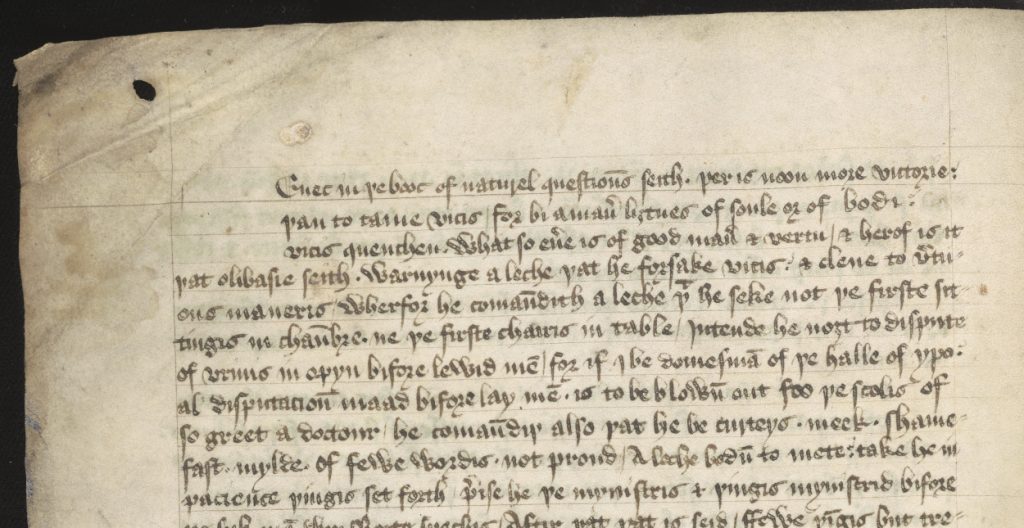 Enec in þe booc of naturel questiouns seith . þer is noon more victorie :
þan to tame vicis / for bi a man listues of soule or of bodi :
vicis quenchen . What so eue is of good man & vertu / & herof is it
þat olibasie seith . Warnynge a leche þat he forsake vicis : & cleue to v̄tu-
ous maneris / Wherfor he comaūdith a leche þt he seke not þe firste sit-
tingis in chaūbre . ne þe firste chairis in table / Intende he noȝt to dispute
of vrins in opyn bifore lewid mē / for if I be domesmā of þe halle of ypo .
al disputacioū maad bifore lay mē . is to be blowū out fro þe scolis of
so greet a doctour / he comaūdiþ also þat he be curteys . meek . shame-
fast . mylde . of fewe wordis . not proud / A leche bodū to mete : take he in
pacience þingis set forth / p̄ise he þe mynistris & þingis mynistrid bifore
Aftir þat þat is seid / ffewe þīgis but tre-